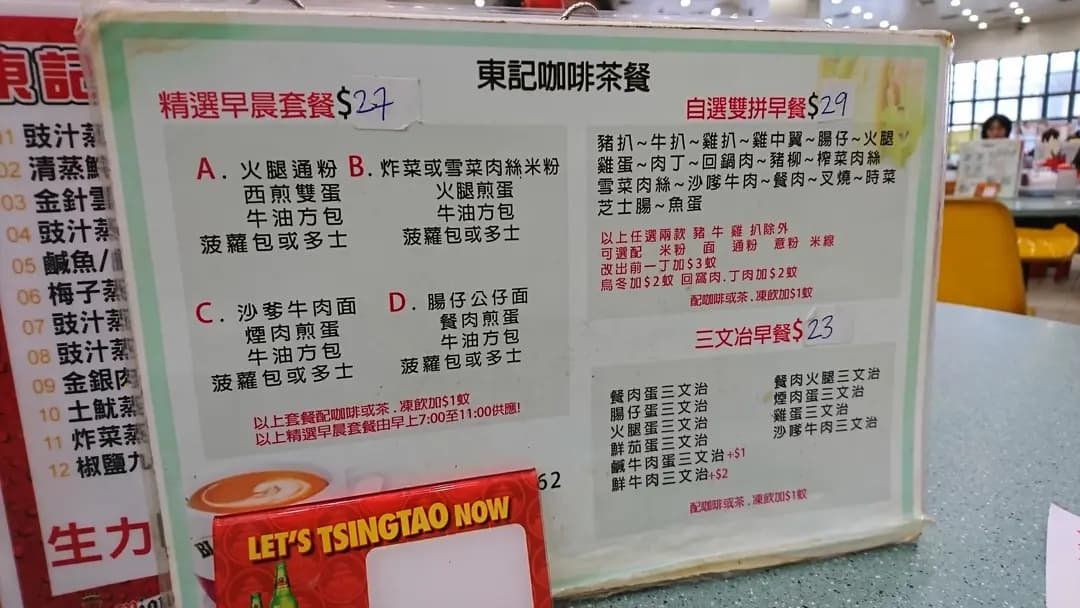 東記咖啡茶餐
精選早晨套餐$27
A. 火腿通粉
西煎雙蛋
牛油方包
菠蘿包或多士
B. 炸菜或雪菜肉絲米粉
火腿煎蛋
牛油方包
菠蘿包或多士
C. 沙爹牛肉面
煙肉煎蛋
牛油方包
菠蘿包或多士
D. 腸仔公仔面
餐肉煎蛋
牛油方包
菠蘿包或多士
以上套餐配咖啡或茶.凍飲加$1蚊
以上精選早晨套餐由早上7:00至11:00供應!
自選雙拼早餐$29
豬扒~牛扒~雞扒~雞中翼~腸仔~火腿
雞蛋~肉丁~回鍋肉~豬柳~榨菜肉絲
雪菜肉絲~沙嗲牛肉~餐肉~叉燒~時菜
芝士腸~魚蛋
以上任選兩款 豬 牛 雞 扒除外
可選配 米粉 面 通粉 意粉 米線
改出前一丁加$3蚊
烏冬加$2蚊 回窩肉.丁肉加$2蚊
配咖啡或茶.凍飲加$1蚊
三文治早餐$23
餐肉蛋三文治
腸仔蛋三文治
火腿蛋三文治
鮮茄蛋三文治
鹹牛肉蛋三文治+$1
鮮牛肉三文治+$2
餐肉火腿三文治
煙肉蛋三文治
雞蛋三文治
沙嗲牛肉三文治
配咖啡或茶.凍飲加$1蚊
62
LET'S TSINGTAO NOW
東記
01 豉汁蒸
02 清蒸鮮
03 金針雲
04 豉汁蒸
05 鹹魚/
06 梅子蒸
07 豉汁蒸
08 豉汁蒸
09 金銀肉
10 土魷蒸
11 炸菜蒸
12 椒鹽九
生力